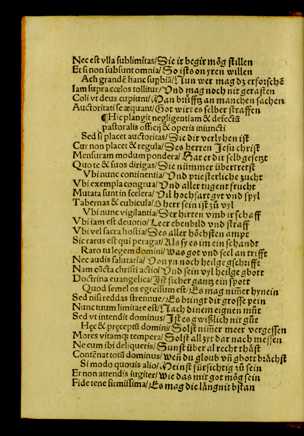 Nec est vlla sublimitas/Sie ir begir mög stillen
Et si non subsunt omnia/So ists on yren willen
Ach grandē hanc supbiā/Nun wer mag dz erforschē
Iam supra cœlos tollitur/Vnd mag noch nit gerasten
Coli vt deus cupitur/Man brüfft an manchen sachen
Auctoritati se æquant/Got wirt es selber straffen
¶Hic plangit negligentiam & defectū
pastoralis officij & operis iniuncti
Sed si placet auctoritas/Sie dir verlyhen ist
Cur non placet & regula/Des herren Jesu christ
Mensuram modum pondera/Hat er dir selb gesetzt
Quo te & tuos dirigas/Sie nümmer übertrettst
Vbi nunc continentia/Vnd priesterliche zucht
Vbi exempla congrua/Vnd aller tugent frucht
Mutata sunt in scelera/Vil hochfart gyt vnd spyl
Tabernas & cubicula/Sherr sein ist zů vyl
Vbi nunc vigilantia/Der hirten vmb ir schaff
Vbi iam est deuotio/Leer ebenbild vnd straff
Vbi vel sacra hostia/Des aller höchsten ampt
Sic rarus est qui peragat/Als sy es im ein schandt
Raro nu legem domini/Was got vnd seel an trifft
Nec audis salutaria/Von yn noch heilge gschrifft
Nam electa christi actio/Vnd sein vyl heilge gbott
Doctrina euangelica/Ist sicher gang ein spott
Quod semel os egressum est/Es mag nüner hynein
Sed nisi reddas strennue/Es bringt dir grosse pein
Nunc tuum limitare est/Nach dinem eignen můt
Sed vt intendit dominus/Jst es gwißlich nit gůt
Hęc & pręcepta domini/Solst nüner meer vergessen
Mores vitamq; tempera/Solst all zyt dar nach messen
Ne cum ibi deliqueris/Sunst über al recht thůst
Contēnat totū dominus/Wen du gloub vñ gbott brächst
Si modo quouis alio/Meinst fürsichtig zů sein
Er non attendis iugiter/Wie das mit got mög sein
Fide tene sumissima/Es mag die läng nit bstan